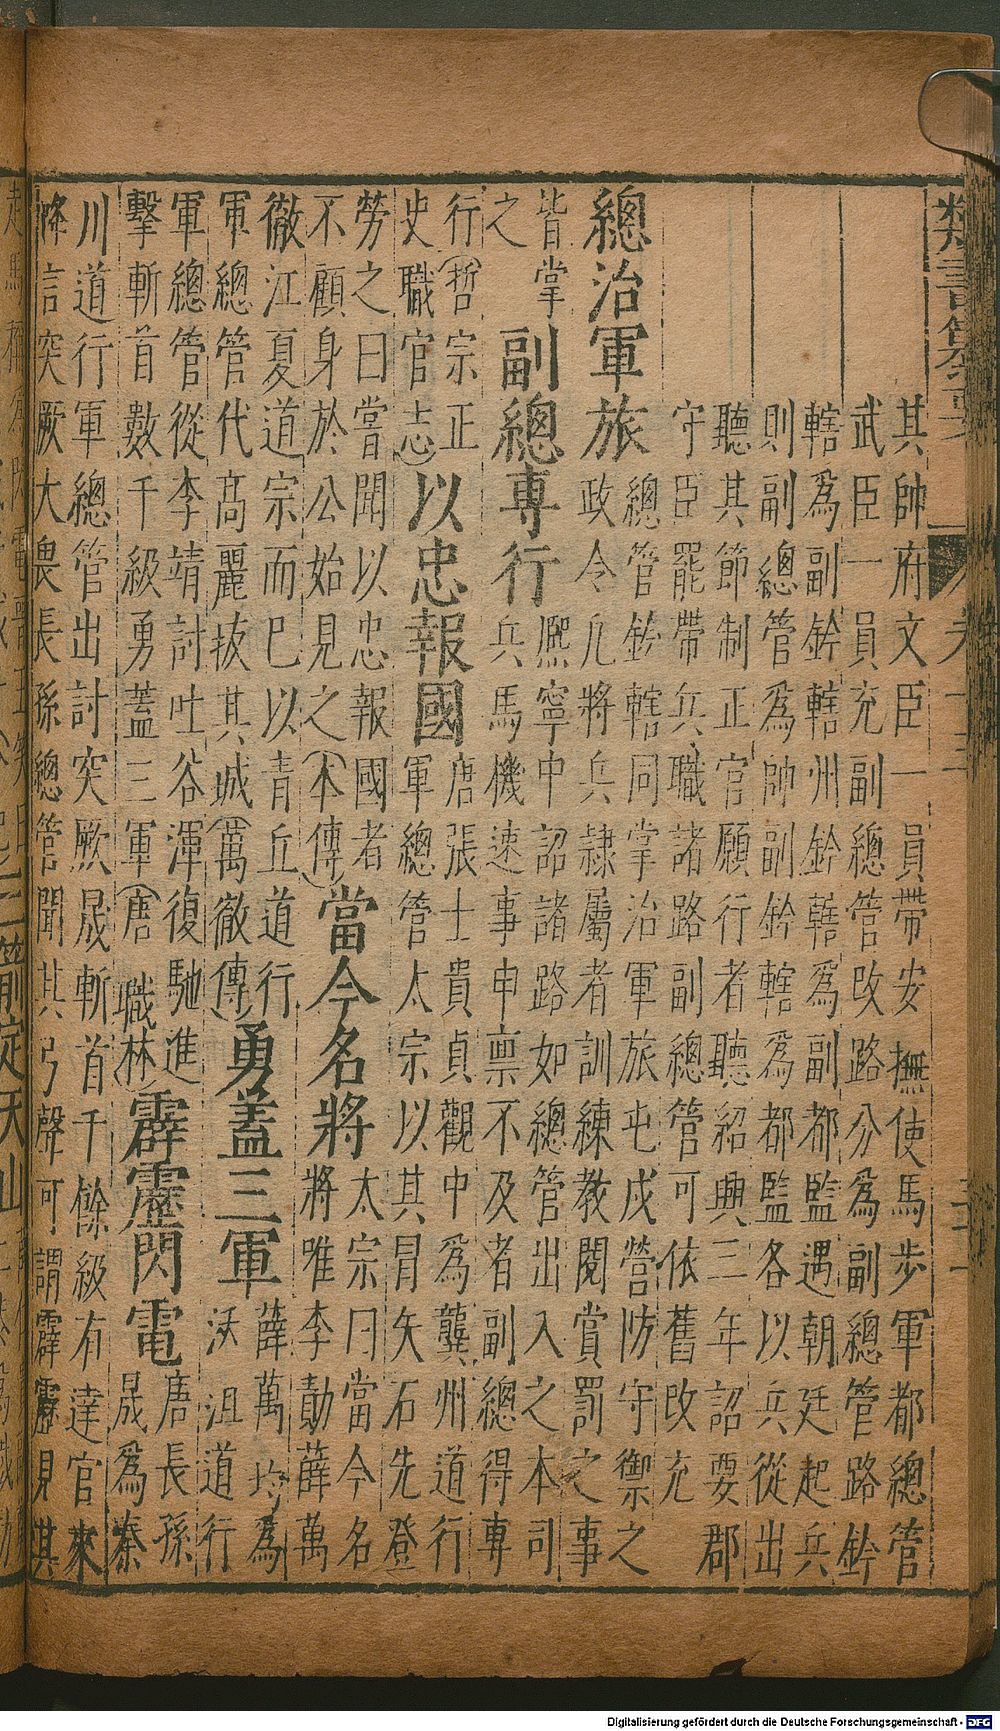 類書纂要
卷十三
其帥府文臣一員帶安撫使馬步軍都總管
武臣一員充副總管改路分爲副總管路鈐
轄爲副鈐轄州鈐轄爲副都監遇朝廷起兵
則副總管爲帥副鈐轄爲都監各以兵從出
聽其節制正官願行者聽紹興三年詔要郡
守臣罷帶兵職諸路副總管可依舊改充
總治軍旅
總管鈐轄同掌治軍旅屯戍營防守禦之
政令凡將兵隷屬者訓練教閱賞罰之事
皆掌
之
副總專行
熈寧中詔諸路如總管出入之本司
兵馬機速事申禀不及者副總得專
行(哲宗正
史職官志)
以忠報國
唐張士貴貞觀中爲龔州道行
軍總管太宗以其冒矢石先登
勞之曰嘗聞以忠報國者
不顧身於公始見之(本傳)
當今名將
太宗曰當今名
將唯李勣薛萬
徹江夏道宗而已以青丘道行
軍總管代高麗拔其城(萬徹傳)
勇蓋三軍
薛萬均爲
沃沮道行
軍總管從李靖討吐谷渾復馳進
擊斬首數千級勇蓋三軍(唐職林)
霹靂閃電
唐長孫
晟爲秦
川道行軍總管出討突厥晟斬首千餘級有達官來
降信突厥大畏長孫總管聞其弓聲可謂霹靂見其
箭定天山
Digitalisierung gefördert durch die Deutsche Forschungsgemeinschaft - DFG